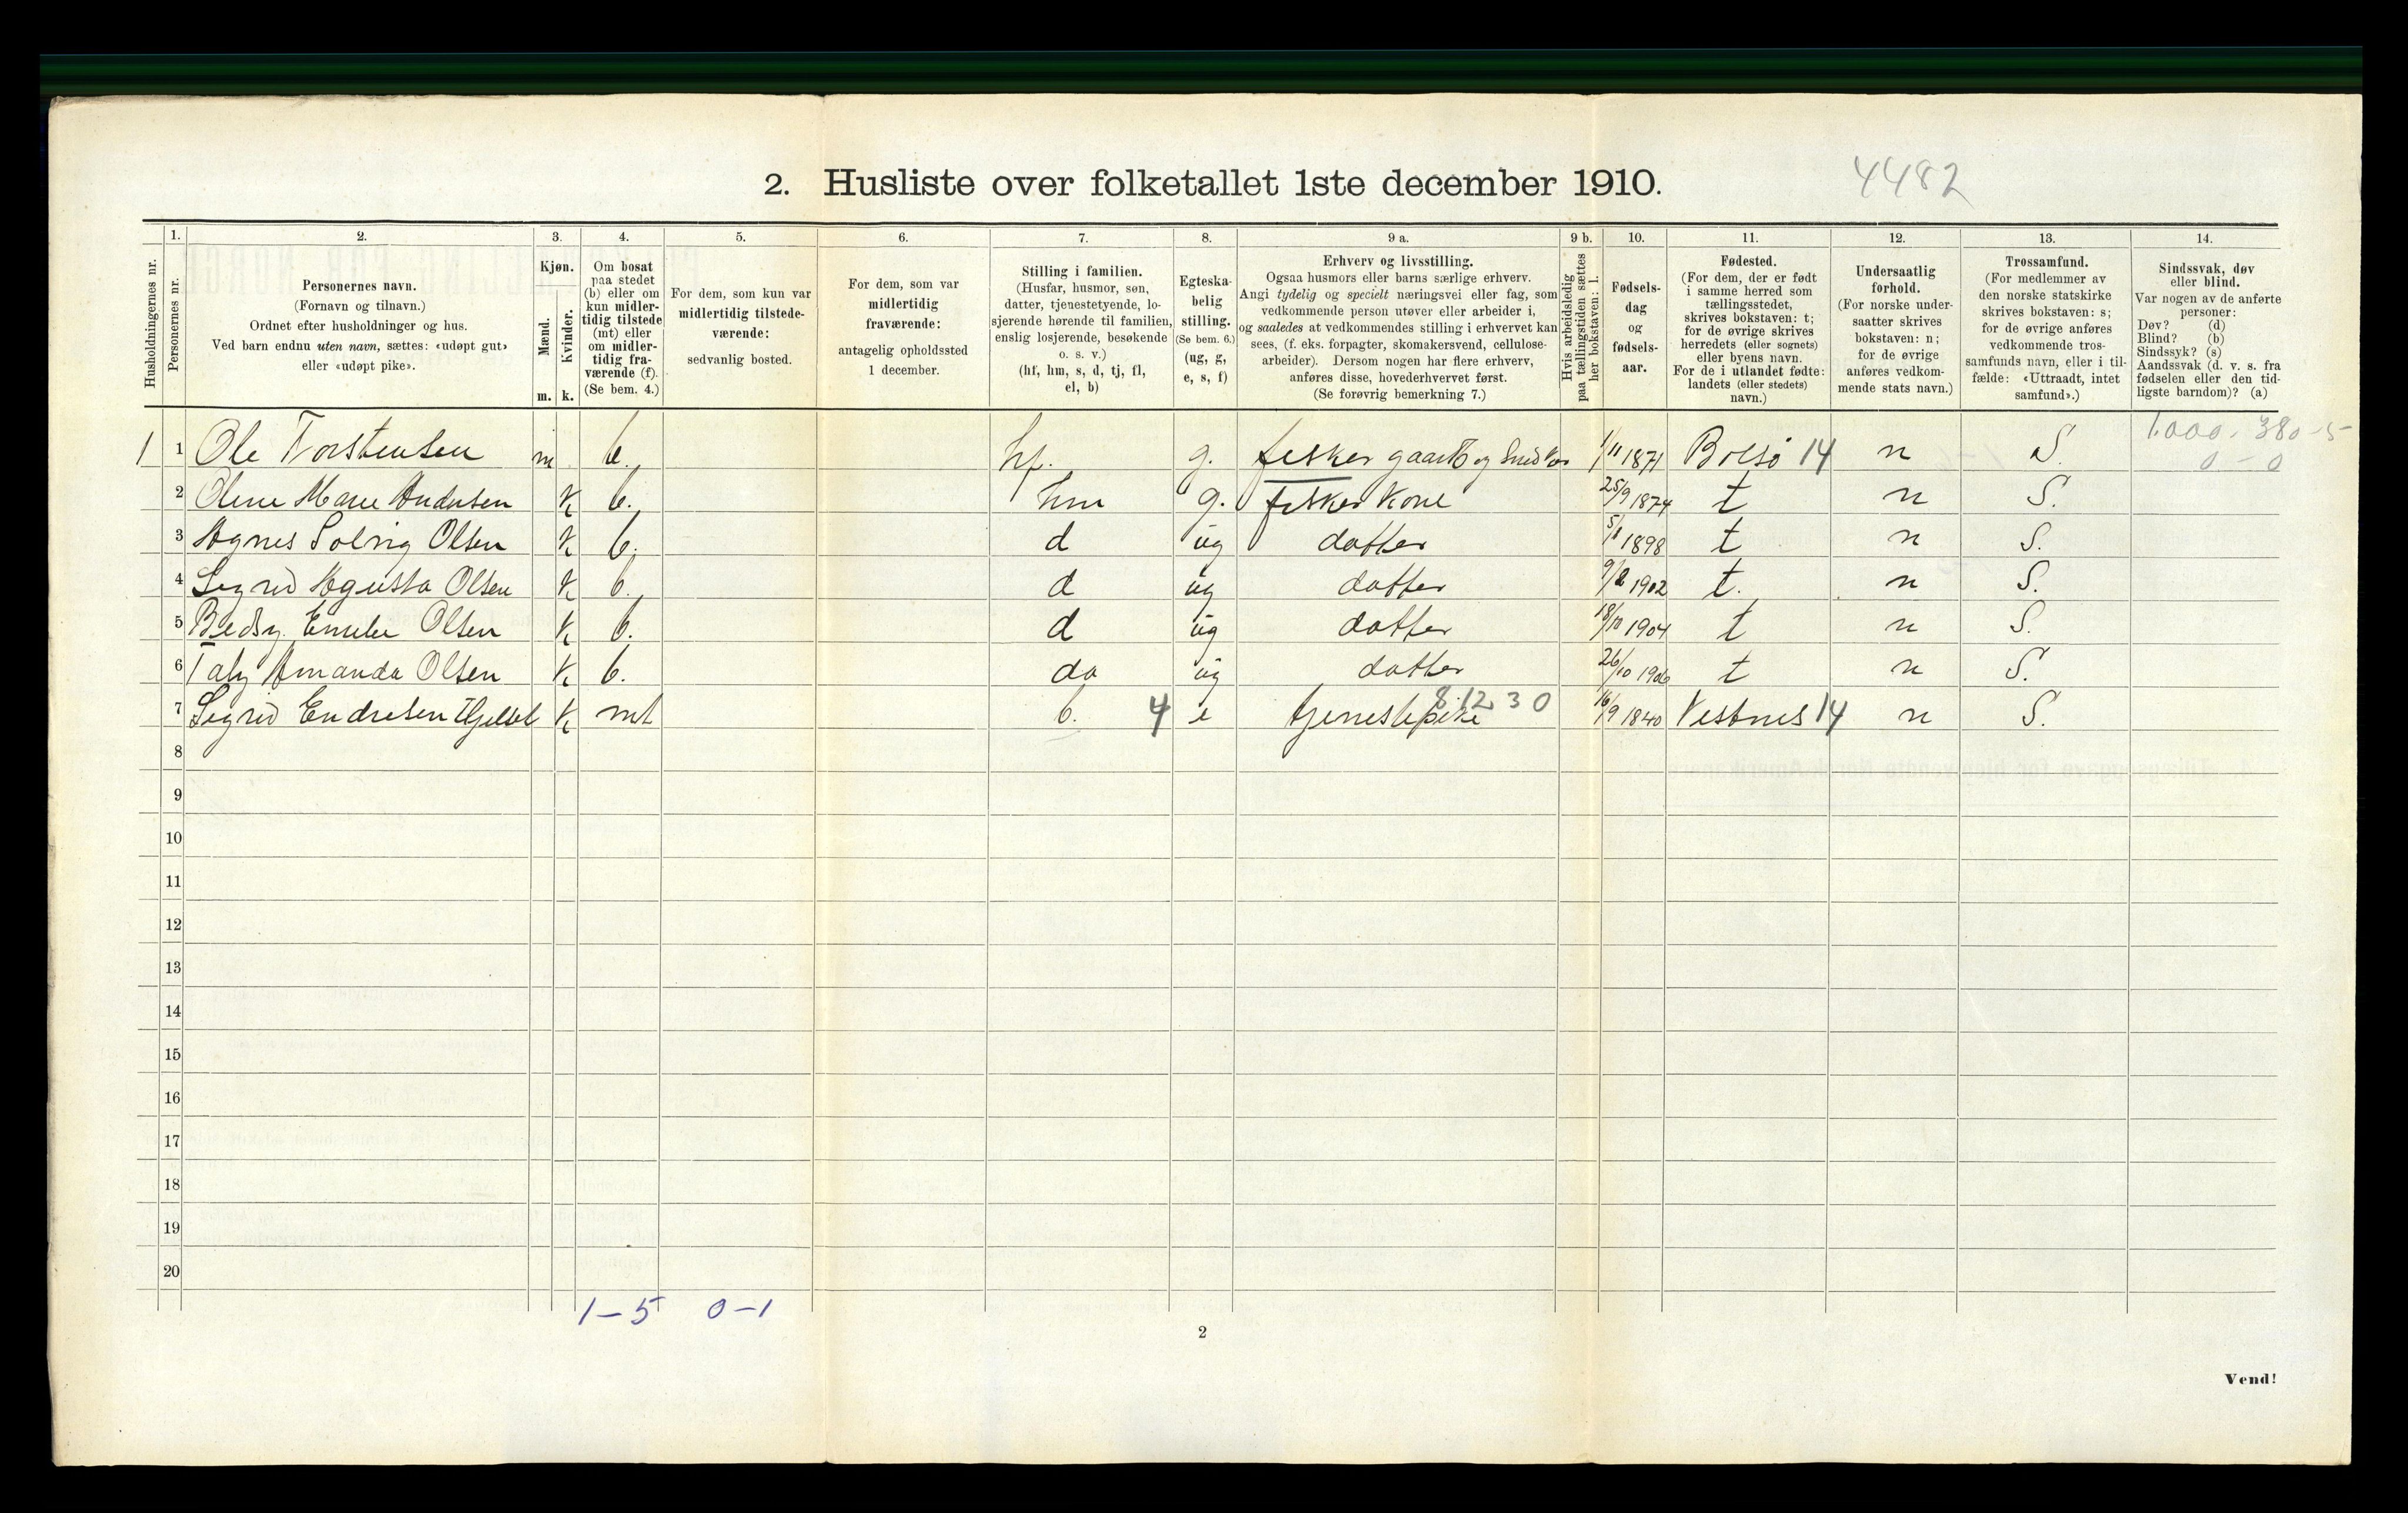 2. Husliste over folketallet 1ste december 1910.
4482
1. 2. 3. 4. 5. 6. 7. 8. 9 a. 9 b. 10. 11. 12. 13. 14.
Husholdningernes nr.
Personernes nr.
Personernes navn.
(Fornavn og tilnavn.)
Ordnet efter husholdninger og hus.
Ved barn endnu uten navn, sættes: «udøpt gut»
eller «udøpt pike».
Kjøn.
Mænd.
Kvinder.
m. k.
Om bosat
paa stedet
(b) eller om
kun midler-
tidig tilstede
(mt) eller
om midler-
tidig fra-
værende (f).
(Se bem. 4.)
For dem, som kun var
midlertidig tilstede-
værende:
sedvanlig bosted.
For dem, som var
midlertidig
fraværende:
antagelig opholdssted
1 december.
Stilling i familien.
(Husfar, husmor, søn,
datter, tjenestetyende, lo-
sjerende hørende til familien,
enslig losjerende, besøkende
o. s. v.)
(hf, hm, s, d, tj, fl,
el, b)
Egteska-
belig
stilling.
(Se bem. 6.)
(ug, g,
e, s, f)
Erhverv og livsstilling.
Ogsaa husmors eller barns særlige erhverv.
Angi tydelig og specielt næringsvei eller fag, som
vedkommende person utøver eller arbeider i,
og saaledes at vedkommendes stilling i erhvervet kan
sees, (f. eks. forpagter, skomakersvend, cellulose-
arbeider). Dersom nogen har flere erhverv,
anføres disse, hovederhvervet først.
(Se forøvrig bemerkning 7.)
Hvis arbeidsledig
paa tællingstiden sættes
her bokstaven: l.
Fødsels-
dag
og
fødsels-
aar.
Fødested.
(For dem, der er født
i samme herred som
tællingsstedet,
skrives bokstaven: t;
for de øvrige skrives
herredets (eller sognets)
eller byens navn.
For de i utlandet fødte:
landets (eller stedets)
navn.)
Undersaatlig
forhold.
(For norske under-
saatter skrives
bokstaven: n;
for de øvrige
anføres vedkom-
mende stats navn.)
Trossamfund.
(For medlemmer av
den norske statskirke
skrives bokstaven: s;
for de øvrige anføres
vedkommende tros-
samfunds navn, eller i til-
fælde: «Uttraadt, intet
samfund».)
Sindssvak, døv
eller blind.
Var nogen av de anførte
personer:
Døv? (d)
Blind? (b)
Sindssyk? (s)
Aandssvak (d. v. s. fra
fødselen eller den tid-
ligste barndom)? (a)
1.000. 380-5
0-0
1 1 Ole Torstensen m b. hf. g. fisker gaardb og 1/11 1871 Bolsø 14 n S.
2 Oline Marie Andersen k b. hm g. Fisker kone 25/9 1874 t n S.
3 Agnes Solvig Olsen k b. d ug datter 5/1 1898 t n S.
4 Sigrid Agusta Olsen k b. d ug datter 9/2 1902 t. n S.
5 Bedsy Emelie Olsen k b. d ug datter 18/10 1904 t n S.
6 Taly Amanda Olsen k b. do ug datter 26/10 1906 t n S.
7 Sigrid Endresen Hjelset k mt b. 4 e tjenestepike 8.12 30 16/9 1840 Vestnes 14 n S.
8
9
10
11
12
13
14
15
16
17
18
19
20
1-5 0-1
2
Vend!